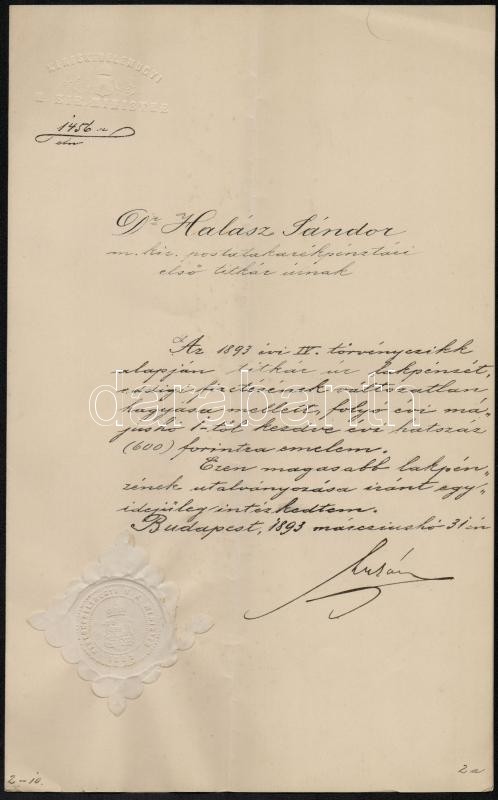 KERESKEDELEMÜGYI
M. KIR. MINISTER
1456 sz
eln
Dr. Halász Sándor
m. kir. postatakarékpénztári
első titkár úrnak
Az 1893 évi IV. törvényczikk
alapján titkár úr lakpénzét,
eddigi fizetésének változatlan
hagyása mellett, folyó évi má-
jushó 1-től kezdve évi hatszáz
(600) forintra emelem.
Ezen magasabb lakpén-
zének utalványozása iránt egy-
idejűleg intézkedtem.
Budapest, 1893 márcziushó 31én
darabanth.com
2-10.